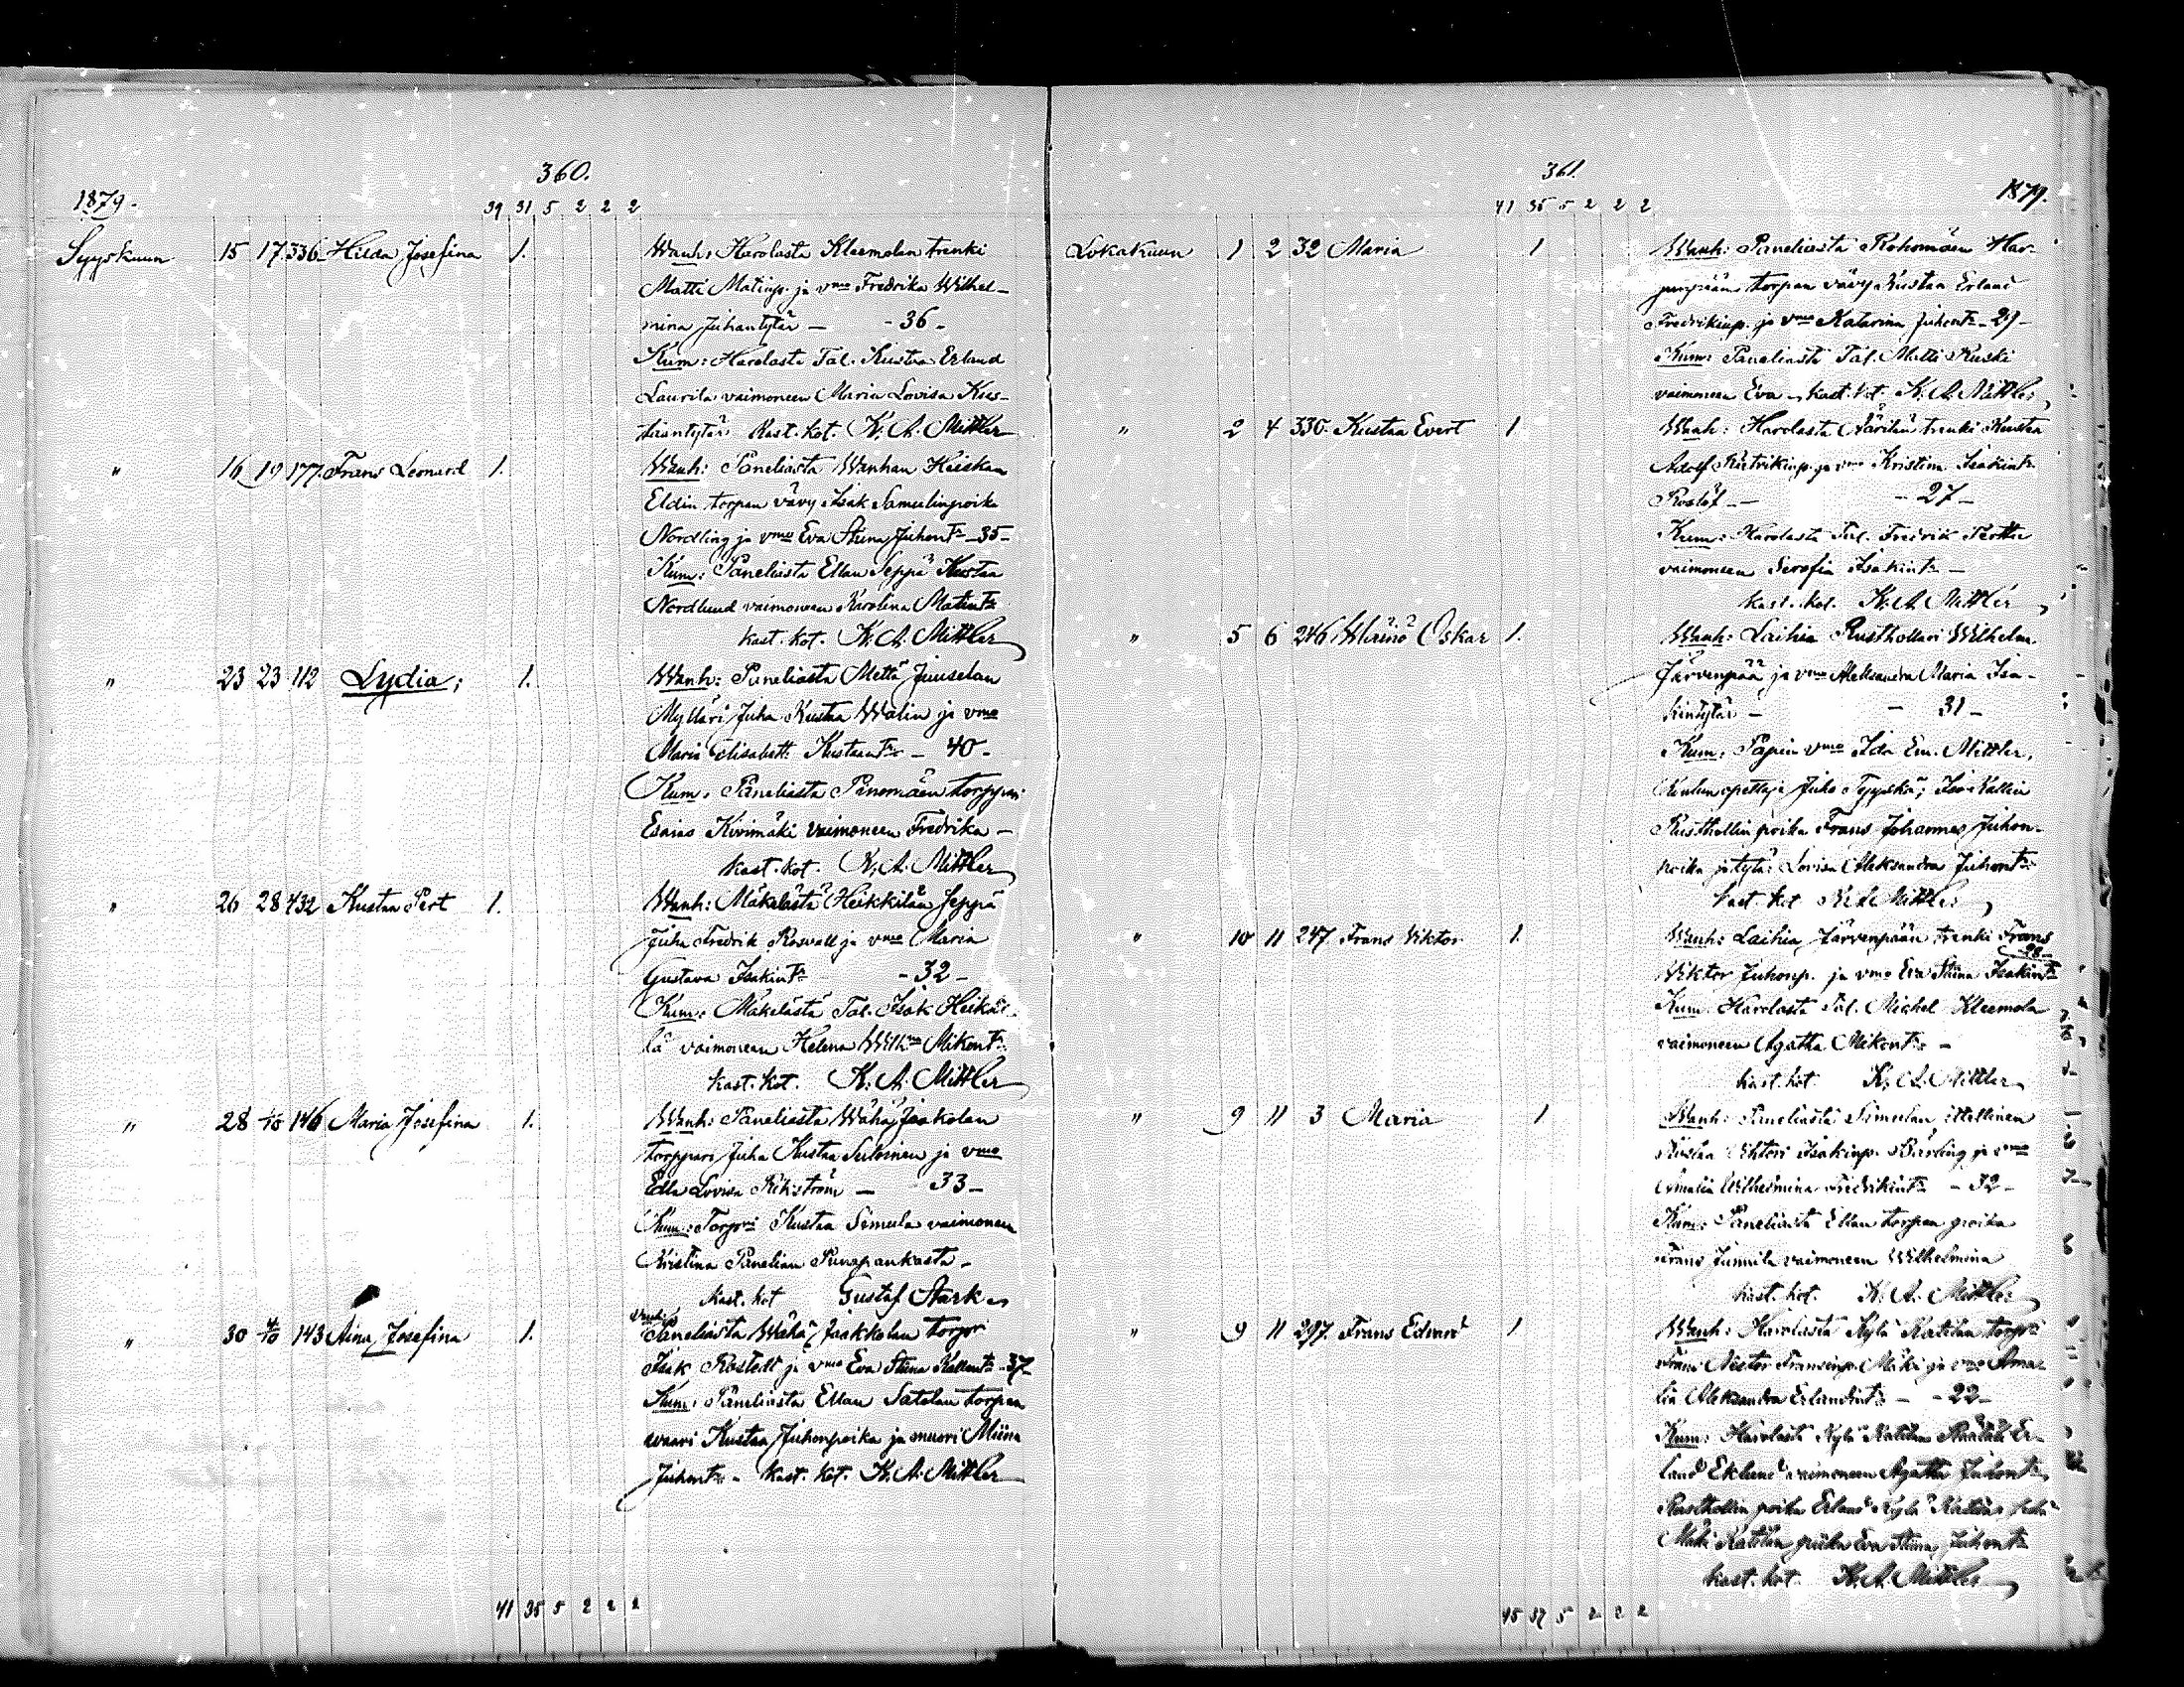 360.
1879.
39 31 5 2 2 2
Syyskuun 15 17 336 Hilda Josefina 1. Wanh: Harolasta Kleemolan trenki
Matti Matinp. ja vmo Fredrika Wilhel-
mina Juhantytär — - 36 -
Kum: Harolasta Tal. Kustaa Erland
Laurila vaimoneen Maria Lovisa Kus-
taantytär Kast. kot. K. A. Mittler
" 16 19 177. Frans Leonard 1. Wanh: Paneliasta Wanhan Heiskan
Eldin torpan vävy Isak Samulinpoika
Nordling ja vmo Eva Stiina Juhont. - 35 -
Kum: Paneliasta Ellan Seppä Kustaa
Nordlund vaimoneen Karolina Matint.
kast. kot. K. A. Mittler
" 23 23 112 Lydia; 1. Wanh: Paneliasta Mettä Juuselan
Mylläri Juha Kustaa Walin ja vmo
Maria Elisabett Kustaant. - 40 -
Kum: Paneliasta torppari
Esaias Kivimäki vaimoneen Fredrika —
kast. kot. K. A. Mittler
" 26 28 432 Kustaa Pert 1. Wanh: Mäkelästä Heikkilän Seppä
Juha Fredrik Rosvall ja vmo Maria
Gustava Isakint. - 32 -
Kum: Mäkelästä Tal. Isak Heikki-
lä vaimoneen Helena Wilh. Mikont.
kast. kot. K. A. Mittler
" 28 1/10 146 Maria Josefina 1. Wanh: Paneliasta Wähä Jaakolan
torppari Juha Kustaa Suloinen ja vmo
Edla Lovisa Rikström — 33 -
Kum: Torpri Kustaa Simula vaimoneen
Kristina Panelian Punapankasta -
Kast. kot Gustaf Stark
" 30 4/10 143 Aina Josefina 1. Wanh: Paneliasta Wähä Jaakkolan torpri
Isak Rostedt ja vmo Eva Stiina Kallent. - 37 -
Kum: Paneliasta Ellan Satolan torpan
waari Kustaa Juhonpoika ja muori Miina
Juhont. - Kast. kot. K. A. Mittler
41 35 5 2 2 2
361.
1879.
41 35 5 2 2 2
Lokakuun 1 2 32 Maria 1 Wanh: Paneliasta Rohomäen Har-
torpan vävy Kustaa Erland
Fredrikinp. ja vmo Katarina Juhont. - 29 -
Kum: Paneliasta Tal. Matti Ruski
vaimoneen Eva - kast. kot. K. A. Mittler
" 2 4 330 Kustaa Evert 1 Wanh: Harolasta Äärilän trenki Kustaa
Adolf ja vmo Kristina Isakint.
- 27 -
Kum: Harolasta Tal. Fredrik Perttu
vaimoneen Serafia Isakint. -
kast. kot. K. A. Mittler
" 5 6 246 Wäinö Oskar 1. Wanh: Laihia Rusthollari Wilhelm
Järvenpää ja vmo Aleksandra Maria Isa-
kintytär - - 31 -
Kum: Papin vmo Ida Em. Mittler,
Koulun opettaja Juho Isokallin
Rusthollin poika Frans Johannes Juhon-
poika ja tytär Lovisa Aleksandra Juhont.
kast. kot K. A. Mittler
" 10 11 247 Frans Viktor 1. Wanh: Laihia Järvenpään trenki Frans
Wiktor Juhonp. ja vmo Eva Stiina Isakint.
Kum: Harolasta Tal. Michel Kleemola
vaimoneen Agatha Mikont. -
kast. kot. K. A. Mittler
" 9 11 3 Maria 1 Wanh: Paneliasta Simulan itellinen
Kustaa Viktori Isakinp. Bärling ja vmo
Amalia Wilhelmina Fredrikint. - 32 -
Kum: Paneliasta Ellan torpan poika
Frans Junnila vaimoneen Wilhelmina
kast. kot. K. A. Mittler
" 9 11 297. Frans Edvard 1 Wanh: Harolasta Kylä Katilan torpri
Frans Nestor Fransinp. Mäki ja vmo Ama-
lia Aleksandra Erlandint. - - 22 -
Kum: Harolasta Kylä Katilan Räätäli Er-
land Eklund vaimoneen Agatha Juhont.
Rusthollin poika Erland Kylä Katila sekä
Mäki Katilan piika Eva Stiina Juhont.
kast. kot. K. A. Mittler
45 37 5 2 2 2